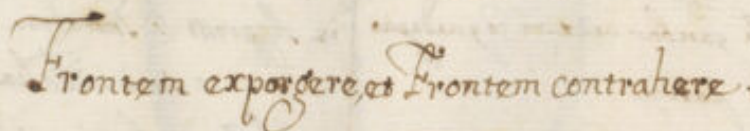 Frontem exporgere, et Frontem contrahere.